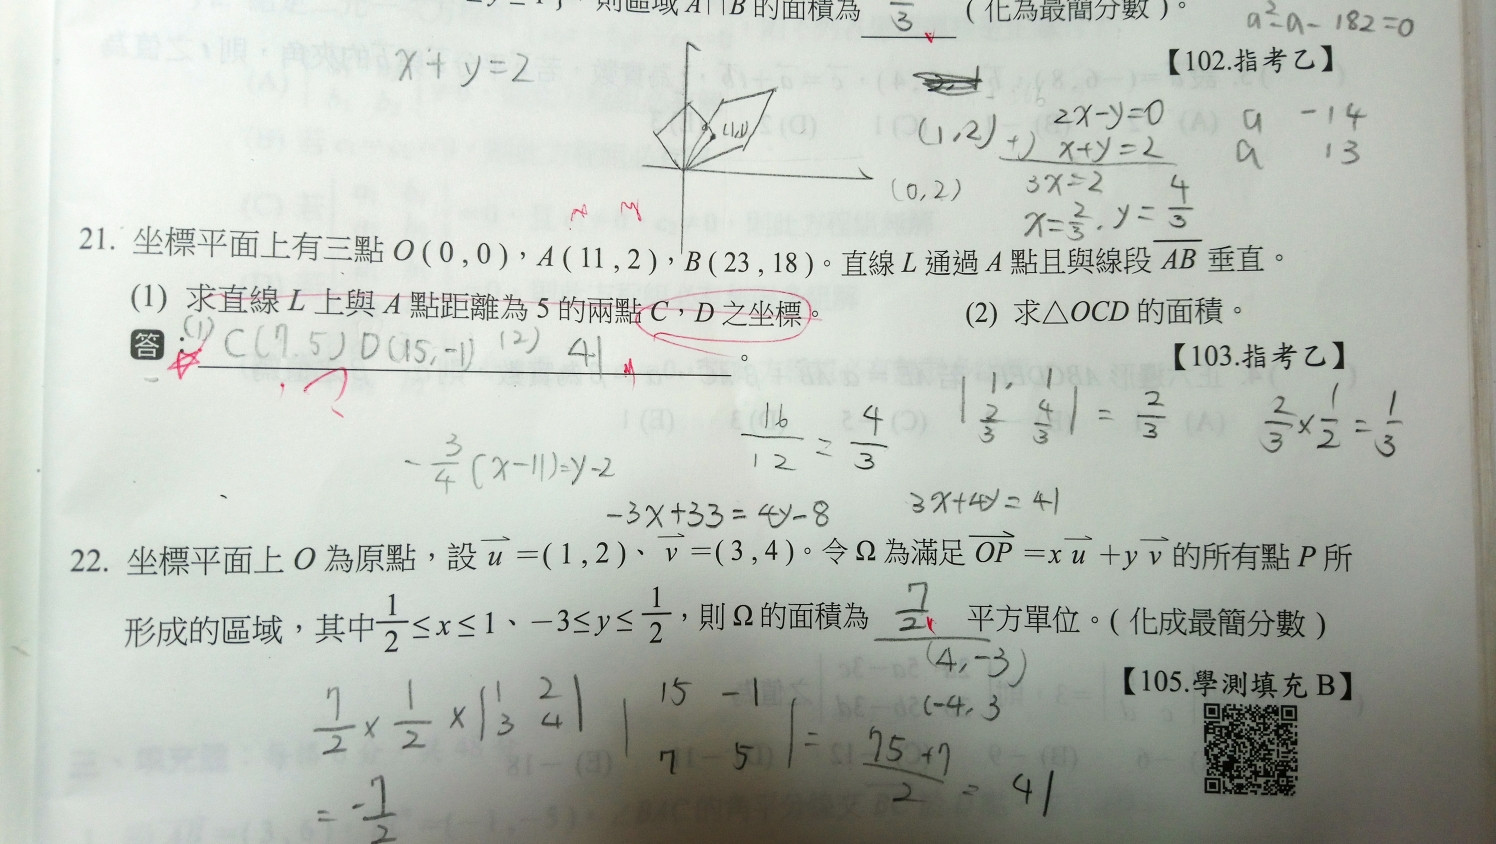 則區域 A∩B 的面積為 3 (化為最簡分數)。
a²-a-182=0
【102.指考乙】
x+y=2
(1,1)
(1,2)
2x-y=0
+) x+y=2
3x=2
x=2/3, y=4/3
(0,2)
a -14
a 13
21. 坐標平面上有三點 O(0,0),A(11,2),B(23,18)。直線 L 通過 A 點且與線段 AB 垂直。
(1) 求直線 L 上與 A 點距離為 5 的兩點 C,D 之坐標。 (2) 求△OCD 的面積。
答:(1) C(7,5) D(15,-1) (2) 41 。
【103.指考乙】
16/12 = 4/3
|1 1 2/3 4/3| = 2/3
2/3 × 1/2 = 1/3
-3/4(x-11)=y-2
-3x+33=4y-8
3x+4y=41
22. 坐標平面上 O 為原點,設 u=(1,2)、v=(3,4)。令 Ω 為滿足 OP=xu+yv 的所有點 P 所
形成的區域,其中 1/2≤x≤1、-3≤y≤1/2,則 Ω 的面積為 7/2 平方單位。(化成最簡分數)
【105.學測填充 B】
(4,-3)
(-4,3
7/2 × 1/2 × |1 2 3 4|
= -7/2
|15 -1 7 5| = 75+7/2 = 41